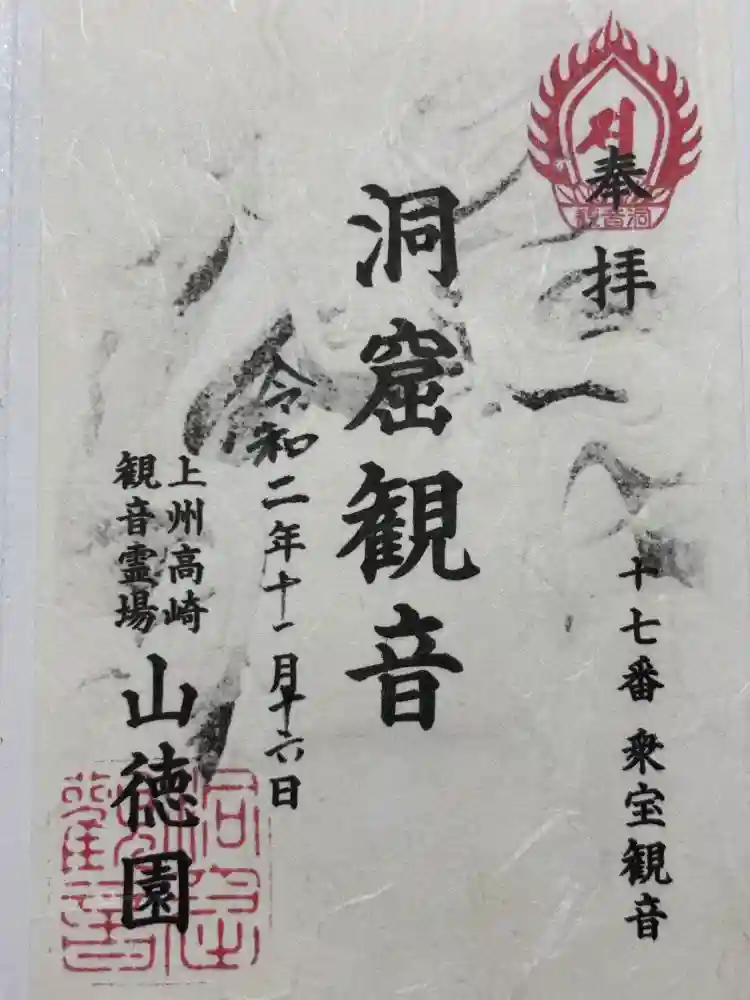 奉拝
十七番 衆宝観音
洞窟観音
令和二年十一月十六日
上州高崎
観音霊場
山徳園
洞窟観音